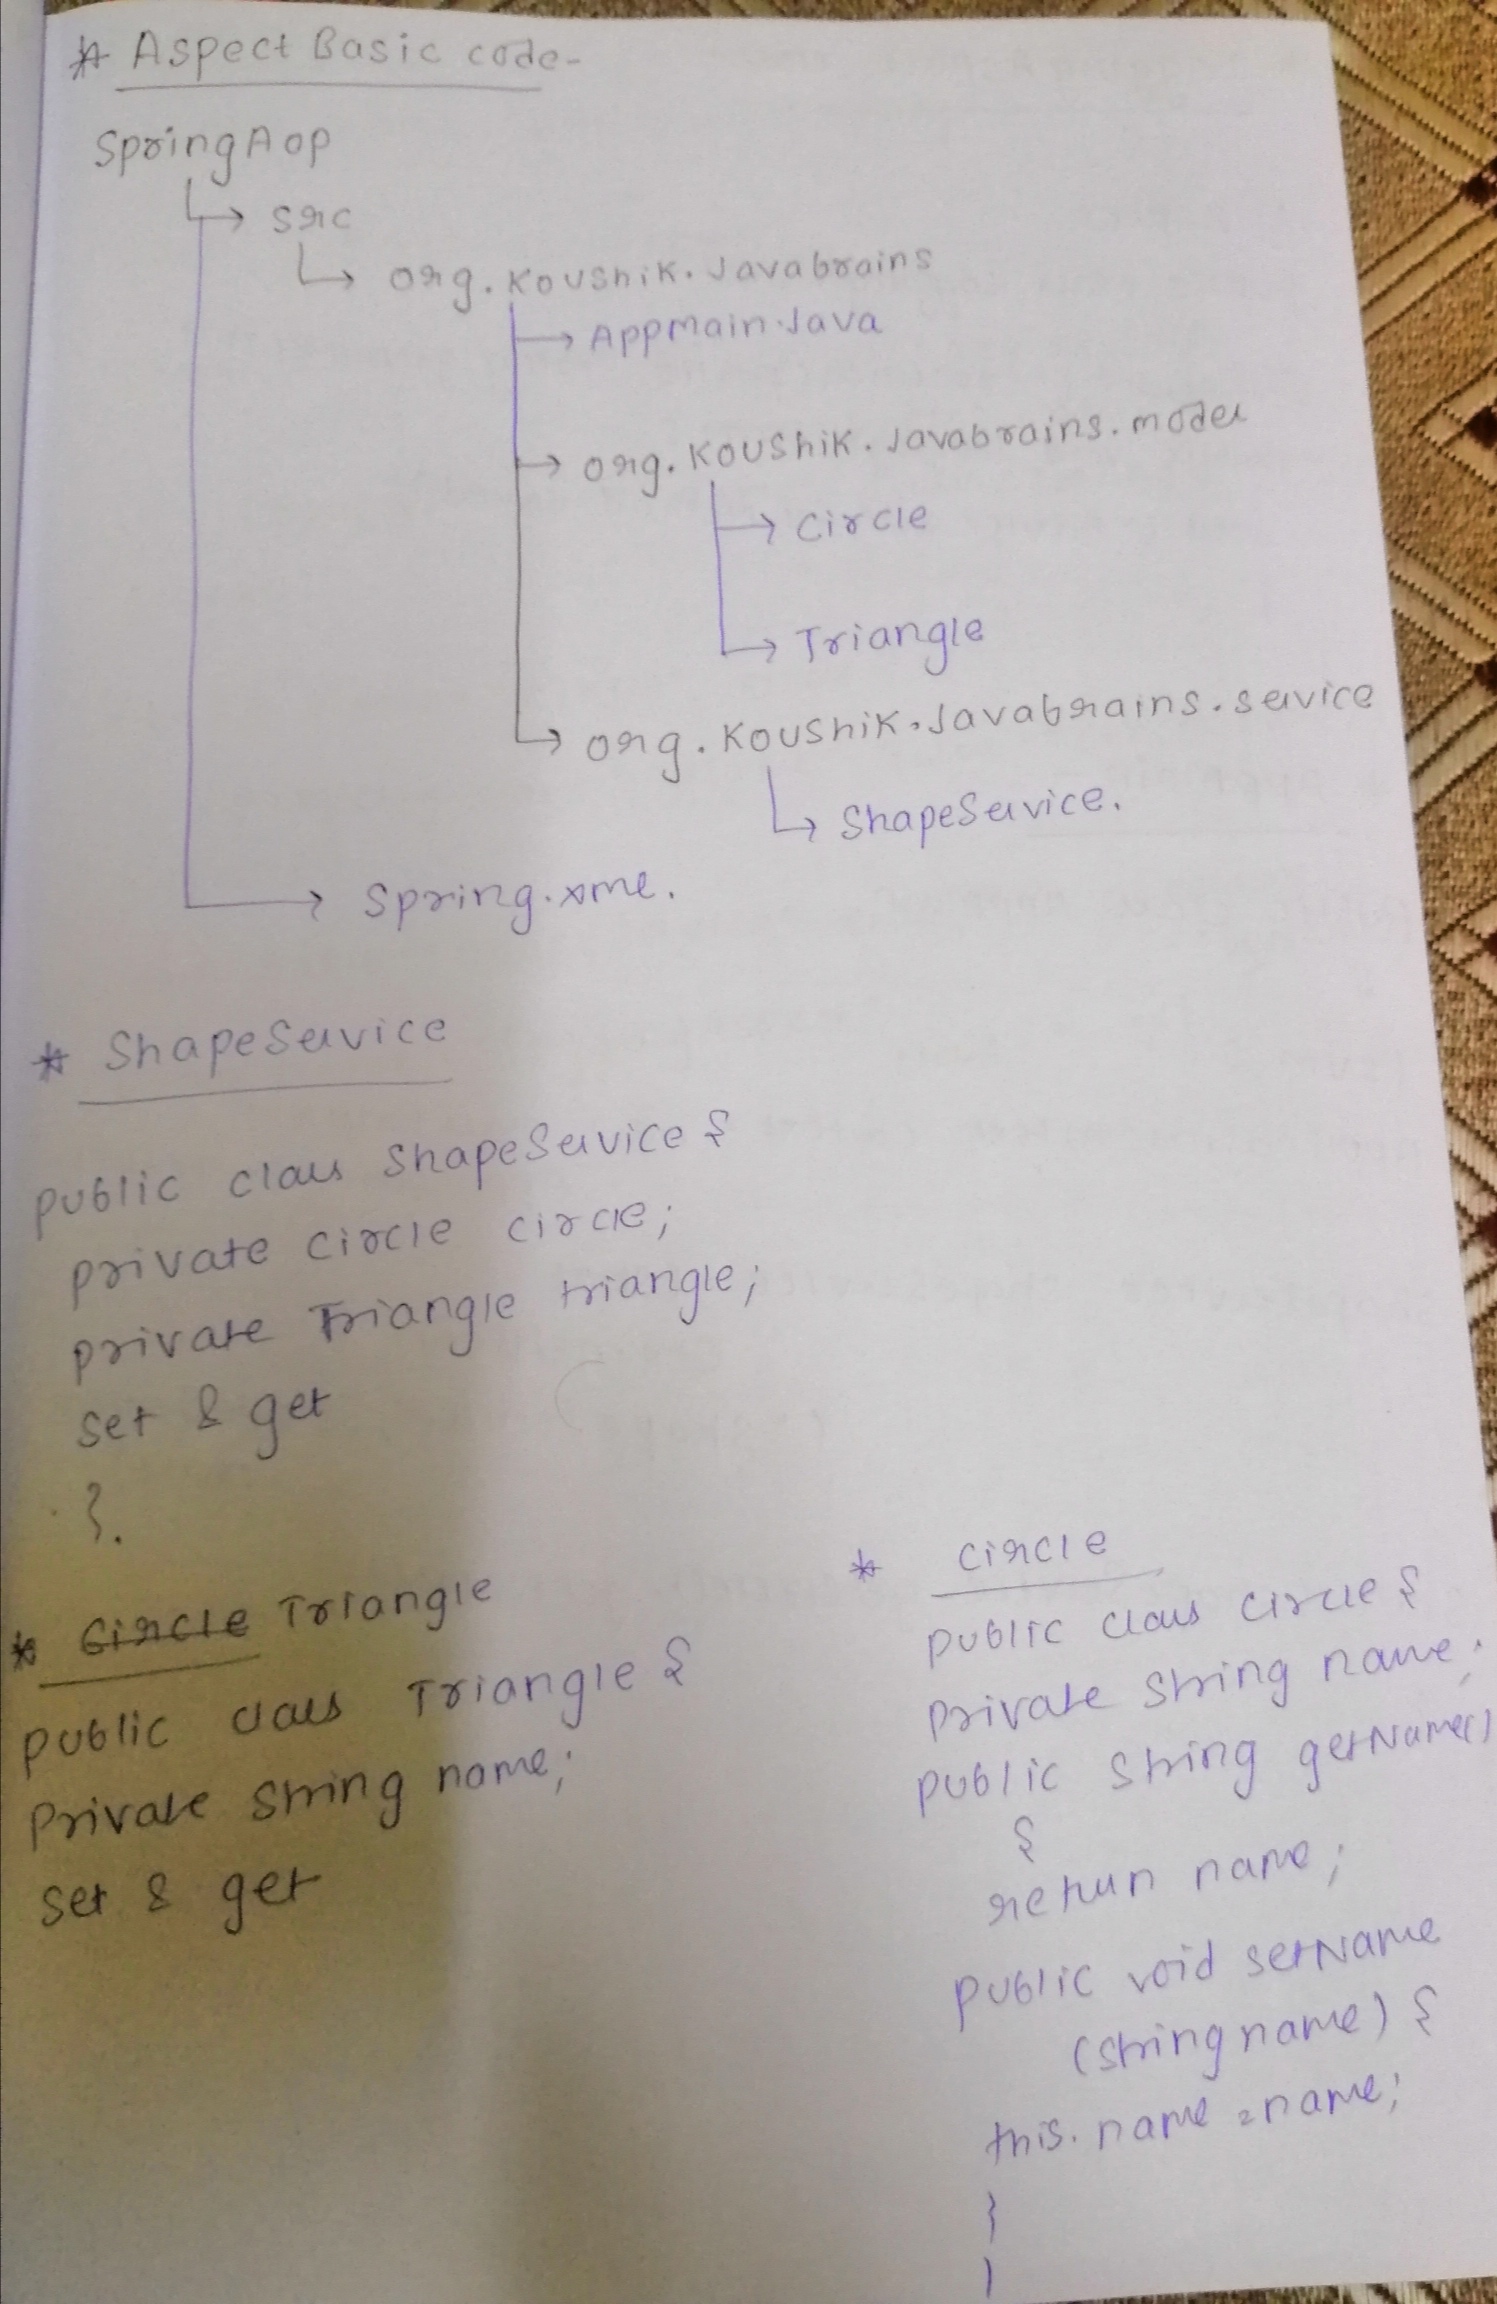 * Aspect Basic code-
SpringAop
src
org.Koushik.Javabrains
AppMain.Java
org.Koushik.Javabrains.model
Circle
Triangle
org.Koushik.Javabrains.service
ShapeService.
Spring.xml.
* ShapeService
public class ShapeService {
private Circle circle;
private Triangle triangle;
set & get
}.
* Circle Triangle
public class Triangle {
Private String name;
set & get
* Circle
public class Circle {
Private String name;
public String getName()
{
return name;
public void setName
(String name) {
this.name = name;
}
}